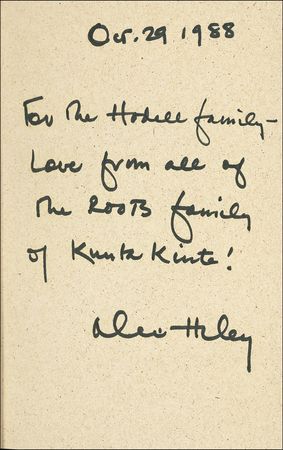 Oct. 29 1988
For the Hodell family—
Love from all of
the ROOTS family
of Kunta Kinte!
Alex Haley